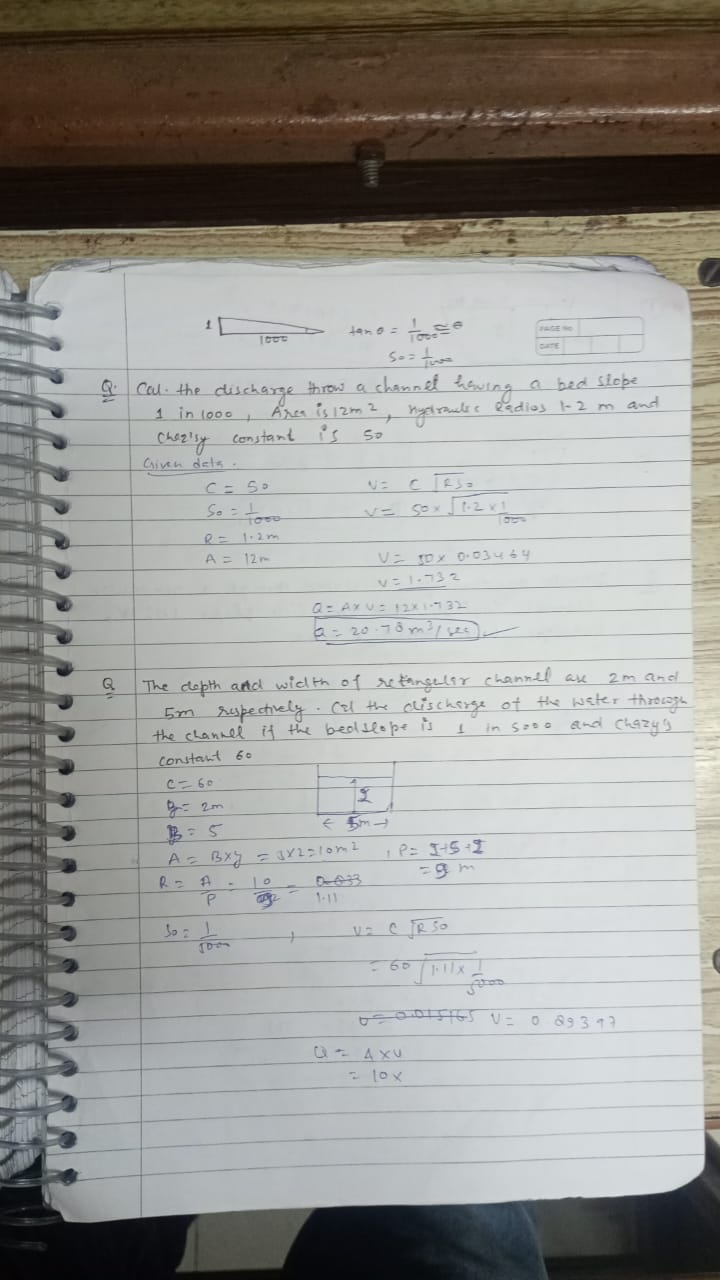 1
1000
tan θ = 1/1000 ≅ θ
So = 1/1000
PAGE NO
DATE
Q. Cal. the discharge throw a channel having a bed slope
1 in 1000, Area is 12m2, hydraulic Radios 1.2 m and
Chezisy constant is 50
Given data.
C = 50
V = C √RSo
So = 1/1000
V = 50 × √1.2 × 1/1000
R = 1.2m
A = 12m
V = 50 × 0.03464
V = 1.732
Q = A × V = 12 × 1.732
Q = 20.78 m3/sec
Q The depth and width of retangular channel are 2m and
5m respectively. Cal the discharge of the water through
the channel if the bedslope is 1 in 5000 and chazy's
constant 60
C = 60
2
y = 2m
← 5m →
B = 5
A = B×y = 5×2 = 10m2, P = 2+5+2
= 9 m
R = A/P = 10/9 = 0.833
1.11
So = 1/5000, V = C √RSo
= 60 √1.11 × 1/5000
V = 0.89397
Q = A×V
= 10×